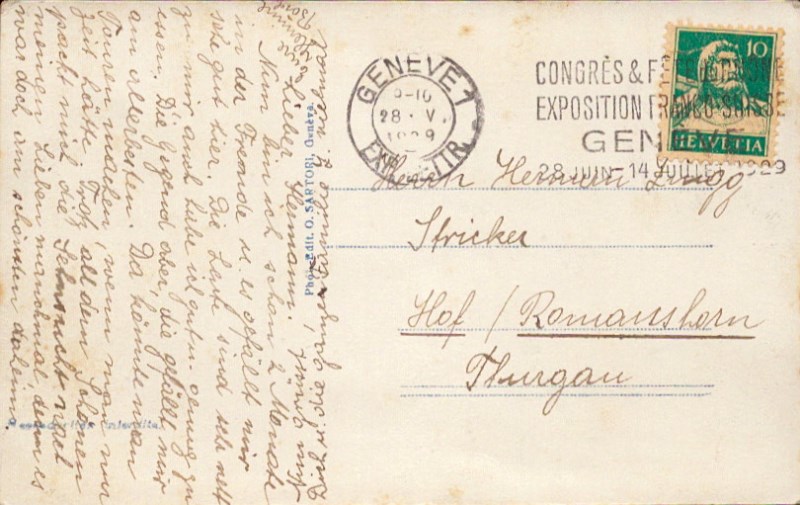 GENÈVE 1
9-10
28. V.
1929
EXP. LETTR.
CONGRÈS &
EXPOSITION FRANCO-SUISSE
GENÈVE
28 JUIN-14 JUILLET 1929
10
HELVETIA
Herrn Herman Zingg
Stricker
Hof / Romanshorn
Thurgau
Phot.-Edit. O. SARTORI, Genève.
Lieber Hermann.
Nun bin ich schon 2 Monate
in der Fremde u. es gefällt mir
sehr gut hier. Die Leute sind sehr nett
zu mir auch habe ich guten genug zu
essen. Die Gegend aber, die gefällt mir
am allerbesten. Da könnte man
Touren machen, wenn man nur
Zeit hätte. Trotz all dem Schönen
packt mich die Sehnsucht nach
meinen Lieben manchmal, denn es
war doch am schönsten daheim.